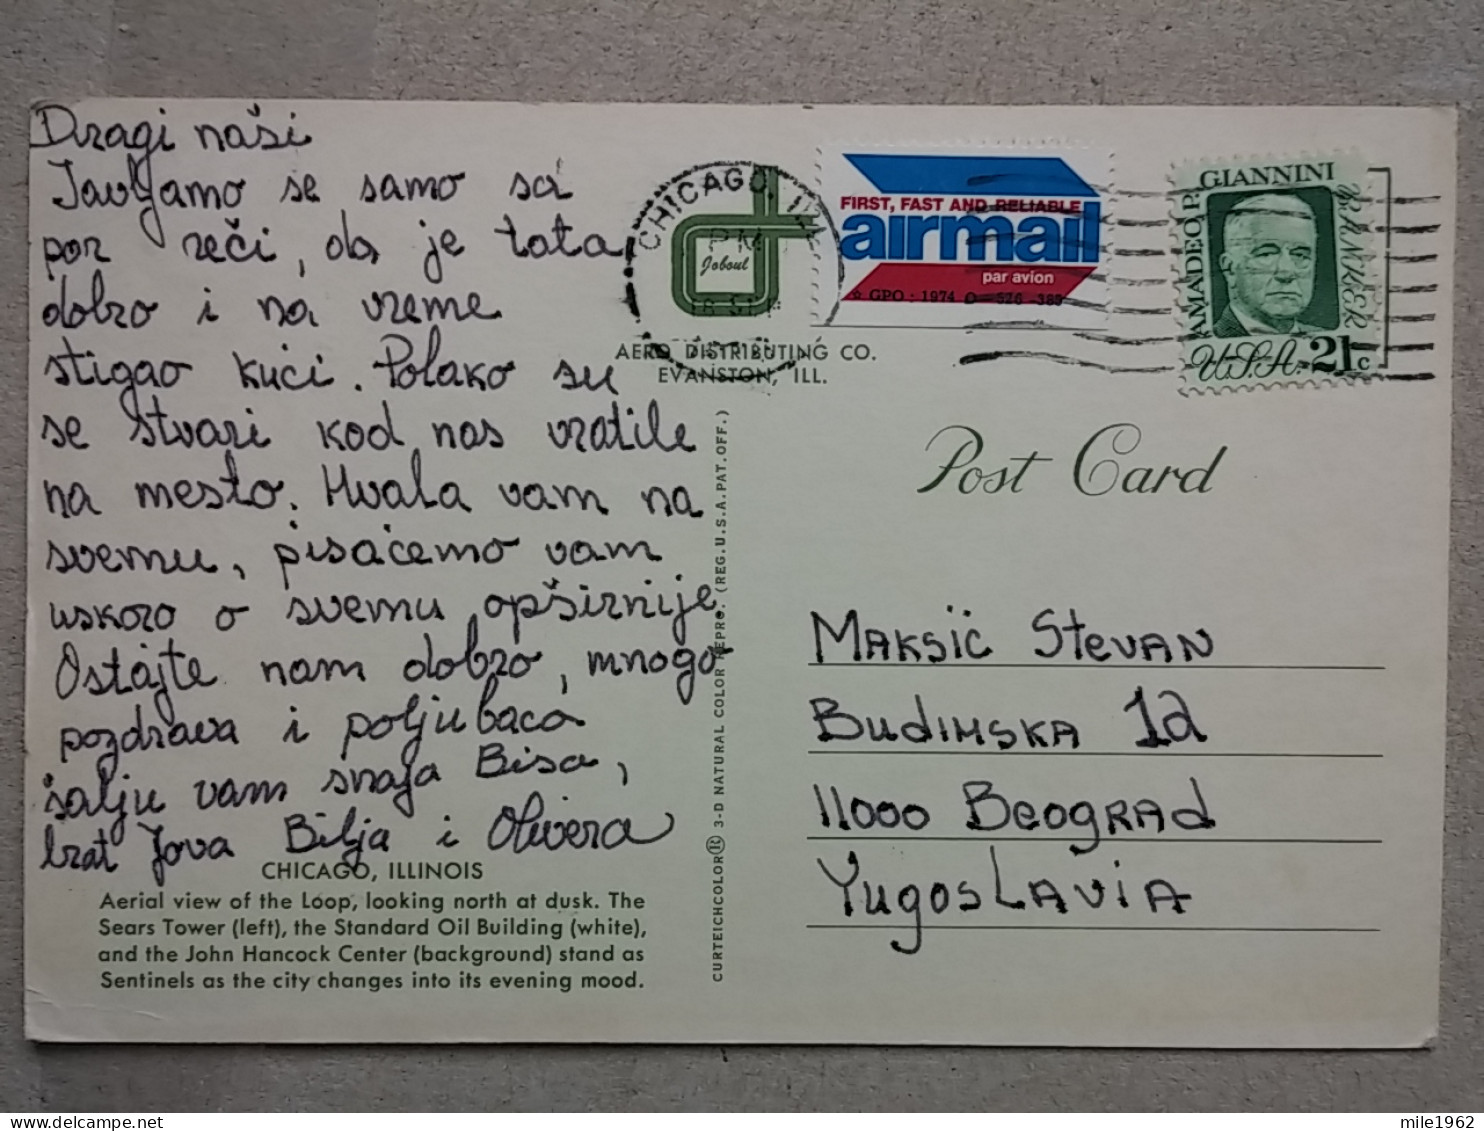 Dragi naši
Javljamo se samo sa
par reči, da je tata
dobro i na vreme
stigao kući. Polako su
se stvari kod nas vratile
na mesto. Hvala vam na
svemu, pisaćemo vam
uskoro o svemu opširnije.
Ostajte nam dobro, mnogo
pozdrava i poljubaca
šalju vam snaja Bisa,
brat Jova Bilja i Olivera
CHICAGO, ILLINOIS
Aerial view of the Loop, looking north at dusk. The
Sears Tower (left), the Standard Oil Building (white),
and the John Hancock Center (background) stand as
Sentinels as the city changes into its evening mood.
CURTEICHCOLOR® 3-D NATURAL COLOR REPRO. (REG. U.S.A. PAT. OFF.)
CHICAGO, ILL
PM
Joboul
AERO DISTRIBUTING CO.
EVANSTON, ILL.
FIRST, FAST AND RELIABLE
airmail
par avion
☆ GPO : 1974 O—526-383
AMADEO P. GIANNINI
BANKER
U.S.A. 21c
Post Card
Maksić Stevan
Budimska 1a
11000 Beograd
Yugoslavia
mile1962